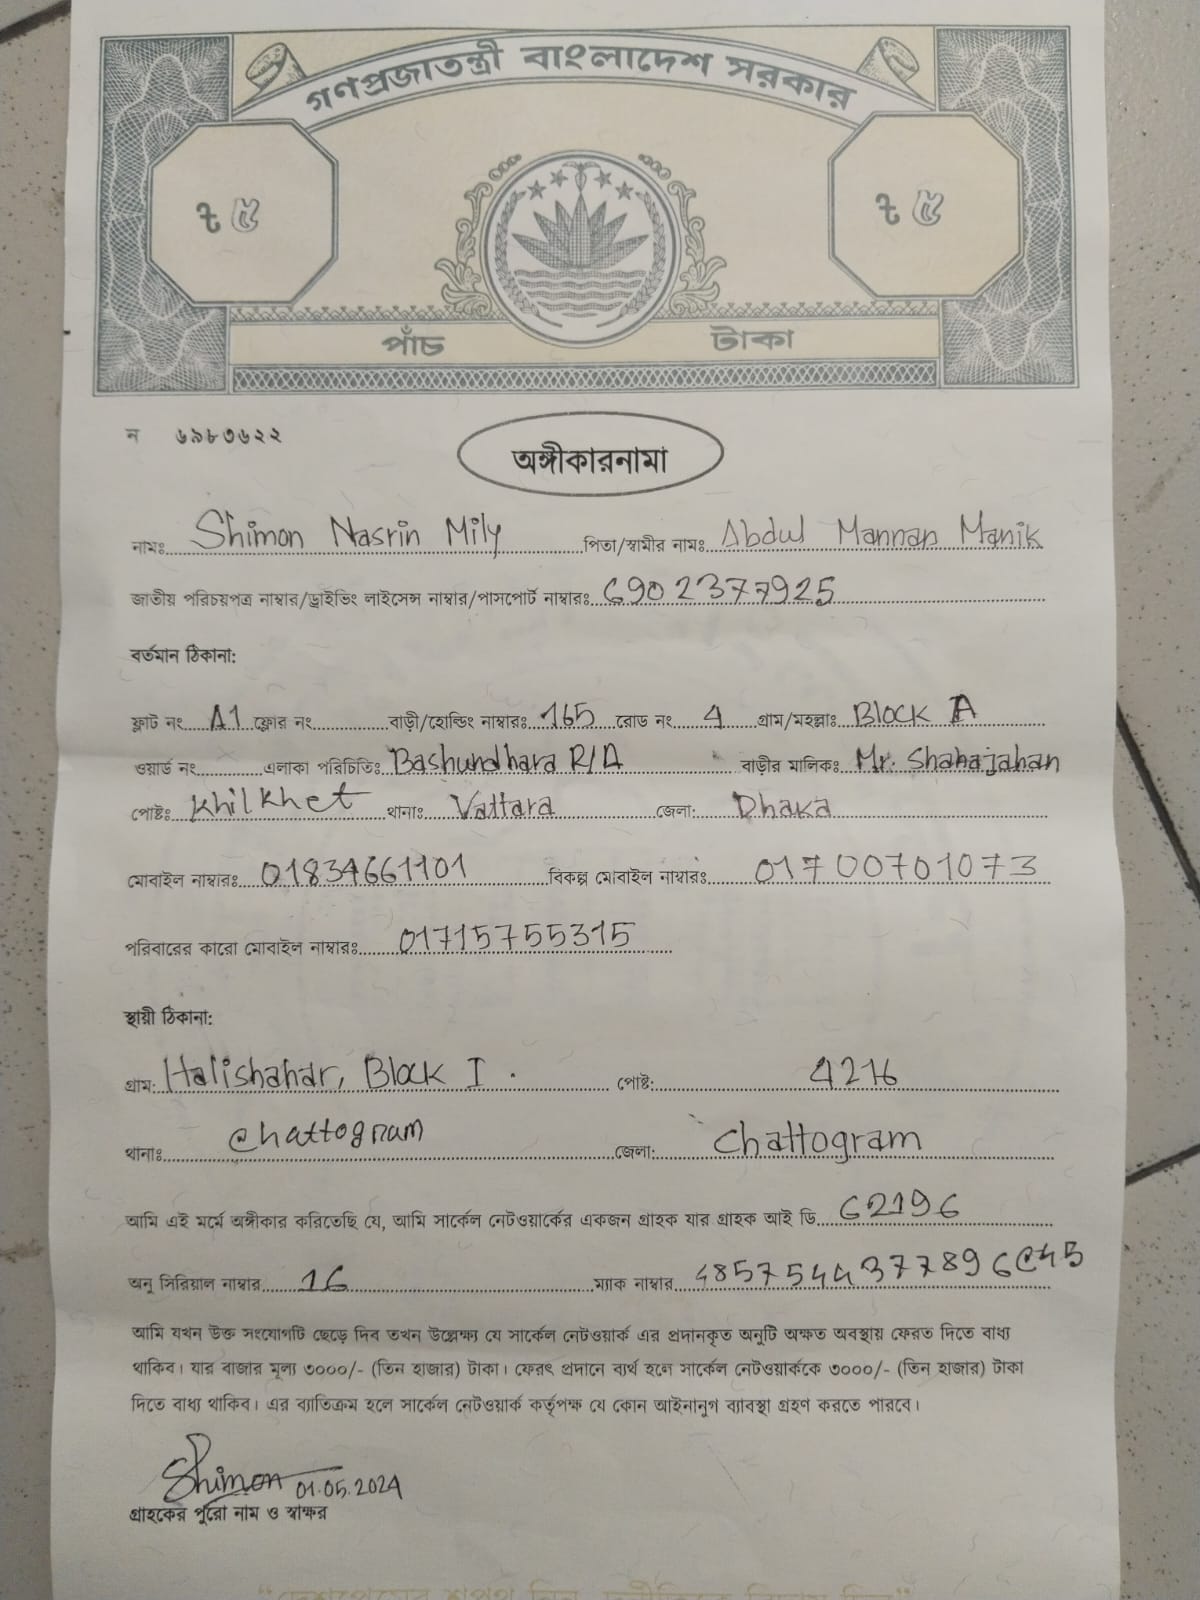 গণপ্রজাতন্ত্রী বাংলাদেশ সরকার
৳ ৫ ৳ ৫
পাঁচ টাকা
ন ৬৯৮৩৬২২
অঙ্গীকারনামা
নামঃ Shimon Nasrin Mily পিতা/স্বামীর নামঃ Abdul Mannan Manik
জাতীয় পরিচয়পত্র নাম্বার/ড্রাইভিং লাইসেন্স নাম্বার/পাসপোর্ট নাম্বারঃ 6902377925
বর্তমান ঠিকানা:
ফ্লাট নং A1 ফ্লোর নং বাড়ী/হোল্ডিং নাম্বারঃ 165 রোড নং 4 গ্রাম/মহল্লাঃ Block A
ওয়ার্ড নং এলাকা পরিচিতিঃ Bashundhara R/A বাড়ীর মালিকঃ Mr. Shahajahan
পোষ্টঃ Khilkhet থানাঃ Vattara জেলা: Dhaka
মোবাইল নাম্বারঃ 01834661101 বিকল্প মোবাইল নাম্বারঃ 01700701073
পরিবারের কারো মোবাইল নাম্বারঃ 01715755315
স্থায়ী ঠিকানা:
গ্রাম: Halishahar, Block I . পোষ্ট: 4216
থানাঃ Chattogram জেলা: Chattogram
আমি এই মর্মে অঙ্গীকার করিতেছি যে, আমি সার্কেল নেটওয়ার্কের একজন গ্রাহক যার গ্রাহক আই ডি 62196
অনু সিরিয়াল নাম্বার 16 ম্যাক নাম্বার 48575444377896C45
আমি যখন উক্ত সংযোগটি ছেড়ে দিব তখন উল্লেক্ষ্য যে সার্কেল নেটওয়ার্ক এর প্রদানকৃত অনুটি অক্ষত অবস্থায় ফেরত দিতে বাধ্য
থাকিব। যার বাজার মূল্য ৩০০০/- (তিন হাজার) টাকা। ফেরৎ প্রদানে ব্যর্থ হলে সার্কেল নেটওয়ার্ককে ৩০০০/- (তিন হাজার) টাকা
দিতে বাধ্য থাকিব। এর ব্যাতিক্রম হলে সার্কেল নেটওয়ার্ক কর্তৃপক্ষ যে কোন আইনানুগ ব্যাবস্থা গ্রহণ করতে পারবে।
Shimon 01.05.2024
গ্রাহকের পুরো নাম ও স্বাক্ষর